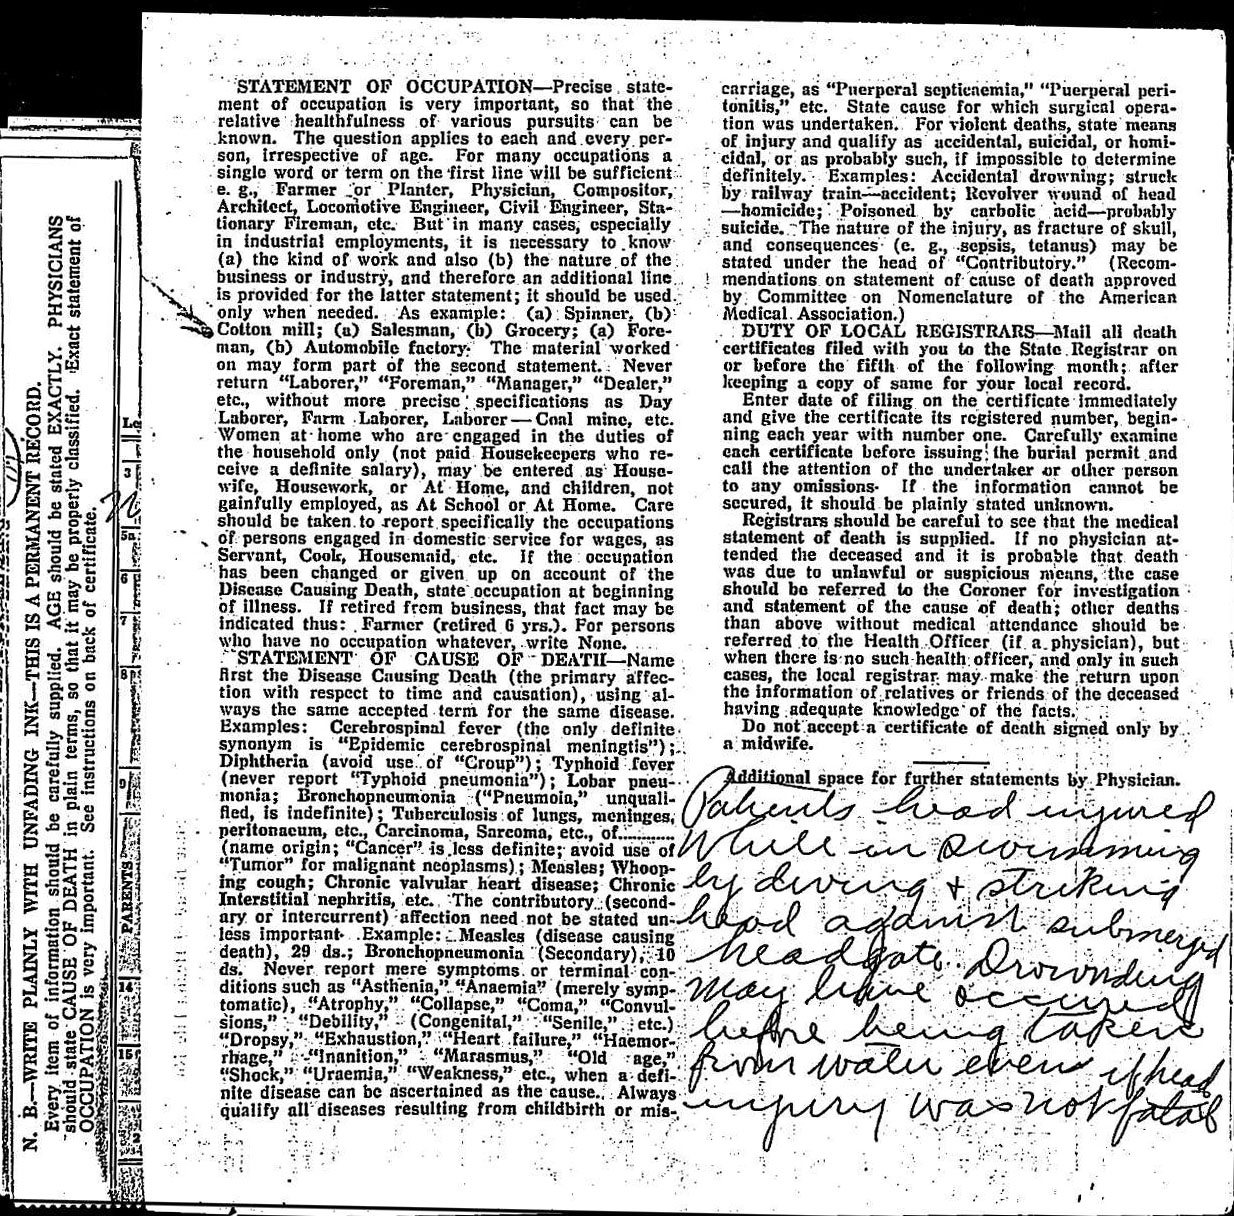 N. B.—WRITE PLAINLY WITH UNFADING INK—THIS IS A PERMANENT RECORD.
Every item of information should be carefully supplied. AGE should be stated EXACTLY. PHYSICIANS
should state CAUSE OF DEATH in plain terms, so that it may be properly classified. Exact statement of
OCCUPATION is very important. See instructions on back of certificate.
3
5a
6
7
8
9
PARENTS
14
15
STATEMENT OF OCCUPATION—Precise state-
ment of occupation is very important, so that the
relative healthfulness of various pursuits can be
known. The question applies to each and every per-
son, irrespective of age. For many occupations a
single word or term on the first line will be sufficient
e. g., Farmer or Planter, Physician, Compositor,
Architect, Locomotive Engineer, Civil Engineer, Sta-
tionary Fireman, etc. But in many cases, especially
in industrial employments, it is necessary to know
(a) the kind of work and also (b) the nature of the
business or industry, and therefore an additional line
is provided for the latter statement; it should be used
only when needed. As example: (a) Spinner, (b)
Cotton mill; (a) Salesman, (b) Grocery; (a) Fore-
man, (b) Automobile factory. The material worked
on may form part of the second statement. Never
return "Laborer," "Foreman," "Manager," "Dealer,"
etc., without more precise specifications as Day
Laborer, Farm Laborer, Laborer—Coal mine, etc.
Women at home who are engaged in the duties of
the household only (not paid Housekeepers who re-
ceive a definite salary), may be entered as House-
wife, Housework, or At Home, and children, not
gainfully employed, as At School or At Home. Care
should be taken to report specifically the occupations
of persons engaged in domestic service for wages, as
Servant, Cook, Housemaid, etc. If the occupation
has been changed or given up on account of the
Disease Causing Death, state occupation at beginning
of illness. If retired from business, that fact may be
indicated thus: Farmer (retired 6 yrs.). For persons
who have no occupation whatever, write None.
STATEMENT OF CAUSE OF DEATH—Name
first the Disease Causing Death (the primary affec-
tion with respect to time and causation), using al-
ways the same accepted term for the same disease.
Examples: Cerebrospinal fever (the only definite
synonym is "Epidemic cerebrospinal meningtis");
Diphtheria (avoid use of "Croup"); Typhoid fever
(never report "Typhoid pneumonia"); Lobar pneu-
monia; Bronchopneumonia ("Pneumoia," unquali-
fied, is indefinite); Tuberculosis of lungs, meninges,
peritonaeum, etc., Carcinoma, Sarcoma, etc., of............
(name origin; "Cancer" is less definite; avoid use of
"Tumor" for malignant neoplasms); Measles; Whoop-
ing cough; Chronic valvular heart disease; Chronic
Interstitial nephritis, etc. The contributory (second-
ary or intercurrent) affection need not be stated un-
less important. Example: Measles (disease causing
death), 29 ds.; Bronchopneumonia (Secondary), 10
ds. Never report mere symptoms or terminal con-
ditions such as "Asthenia," "Anaemia" (merely symp-
tomatic), "Atrophy," "Collapse," "Coma," "Convul-
sions," "Debility," (Congenital," "Senile," etc.)
"Dropsy," "Exhaustion," "Heart failure," "Haemor-
rhage," "Inanition," "Marasmus," "Old age,"
"Shock," "Uraemia," "Weakness," etc., when a defi-
nite disease can be ascertained as the cause. Always
qualify all diseases resulting from childbirth or mis-
carriage, as "Puerperal septicaemia," "Puerperal peri-
tonitis," etc. State cause for which surgical opera-
tion was undertaken. For violent deaths, state means
of injury and qualify as accidental, suicidal, or homi-
cidal, or as probably such, if impossible to determine
definitely. Examples: Accidental drowning; struck
by railway train—accident; Revolver wound of head
—homicide; Poisoned by carbolic acid—probably
suicide. The nature of the injury, as fracture of skull,
and consequences (e. g., sepsis, tetanus) may be
stated under the head of "Contributory." (Recom-
mendations on statement of cause of death approved
by Committee on Nomenclature of the American
Medical Association.)
DUTY OF LOCAL REGISTRARS—Mail all death
certificates filed with you to the State Registrar on
or before the fifth of the following month; after
keeping a copy of same for your local record.
Enter date of filing on the certificate immediately
and give the certificate its registered number, begin-
ning each year with number one. Carefully examine
each certificate before issuing the burial permit and
call the attention of the undertaker or other person
to any omissions. If the information cannot be
secured, it should be plainly stated unknown.
Registrars should be careful to see that the medical
statement of death is supplied. If no physician at-
tended the deceased and it is probable that death
was due to unlawful or suspicious means, the case
should be referred to the Coroner for investigation
and statement of the cause of death; other deaths
than above without medical attendance should be
referred to the Health Officer (if a physician), but
when there is no such health officer, and only in such
cases, the local registrar may make the return upon
the information of relatives or friends of the deceased
having adequate knowledge of the facts.
Do not accept a certificate of death signed only by
a midwife.
Additional space for further statements by Physician.
Patients head injured
while in swimming
by diving & striking
head against submerged
headgate. Drownding
may have occured
before being taken
from water even if head
injury was not fatal